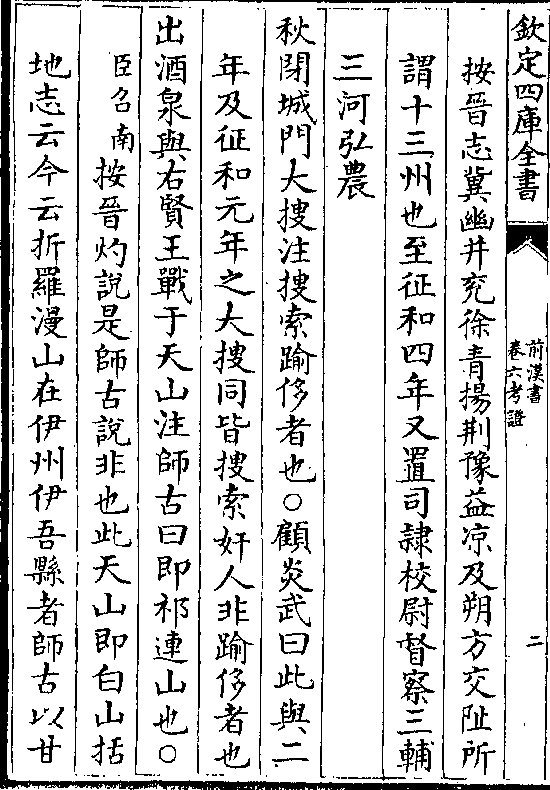 欽定四庫全書
前漢書
卷六考證
二
按晉志冀幽并兖徐青揚荆豫益凉及朔方交阯所
謂十三州也至征和四年又置司隷校尉督察三輔
三河弘農
秋閉城門大搜注搜索踰侈者也○顧炎武曰此與二
年及征和元年之大搜同皆搜索奸人非踰侈者也
出酒泉與右賢王戰于天山注師古曰即祁連山也○
臣召南按晉灼說是師古說非也此天山即白山括
地志云今云折羅漫山在伊州伊吾縣者師古以甘